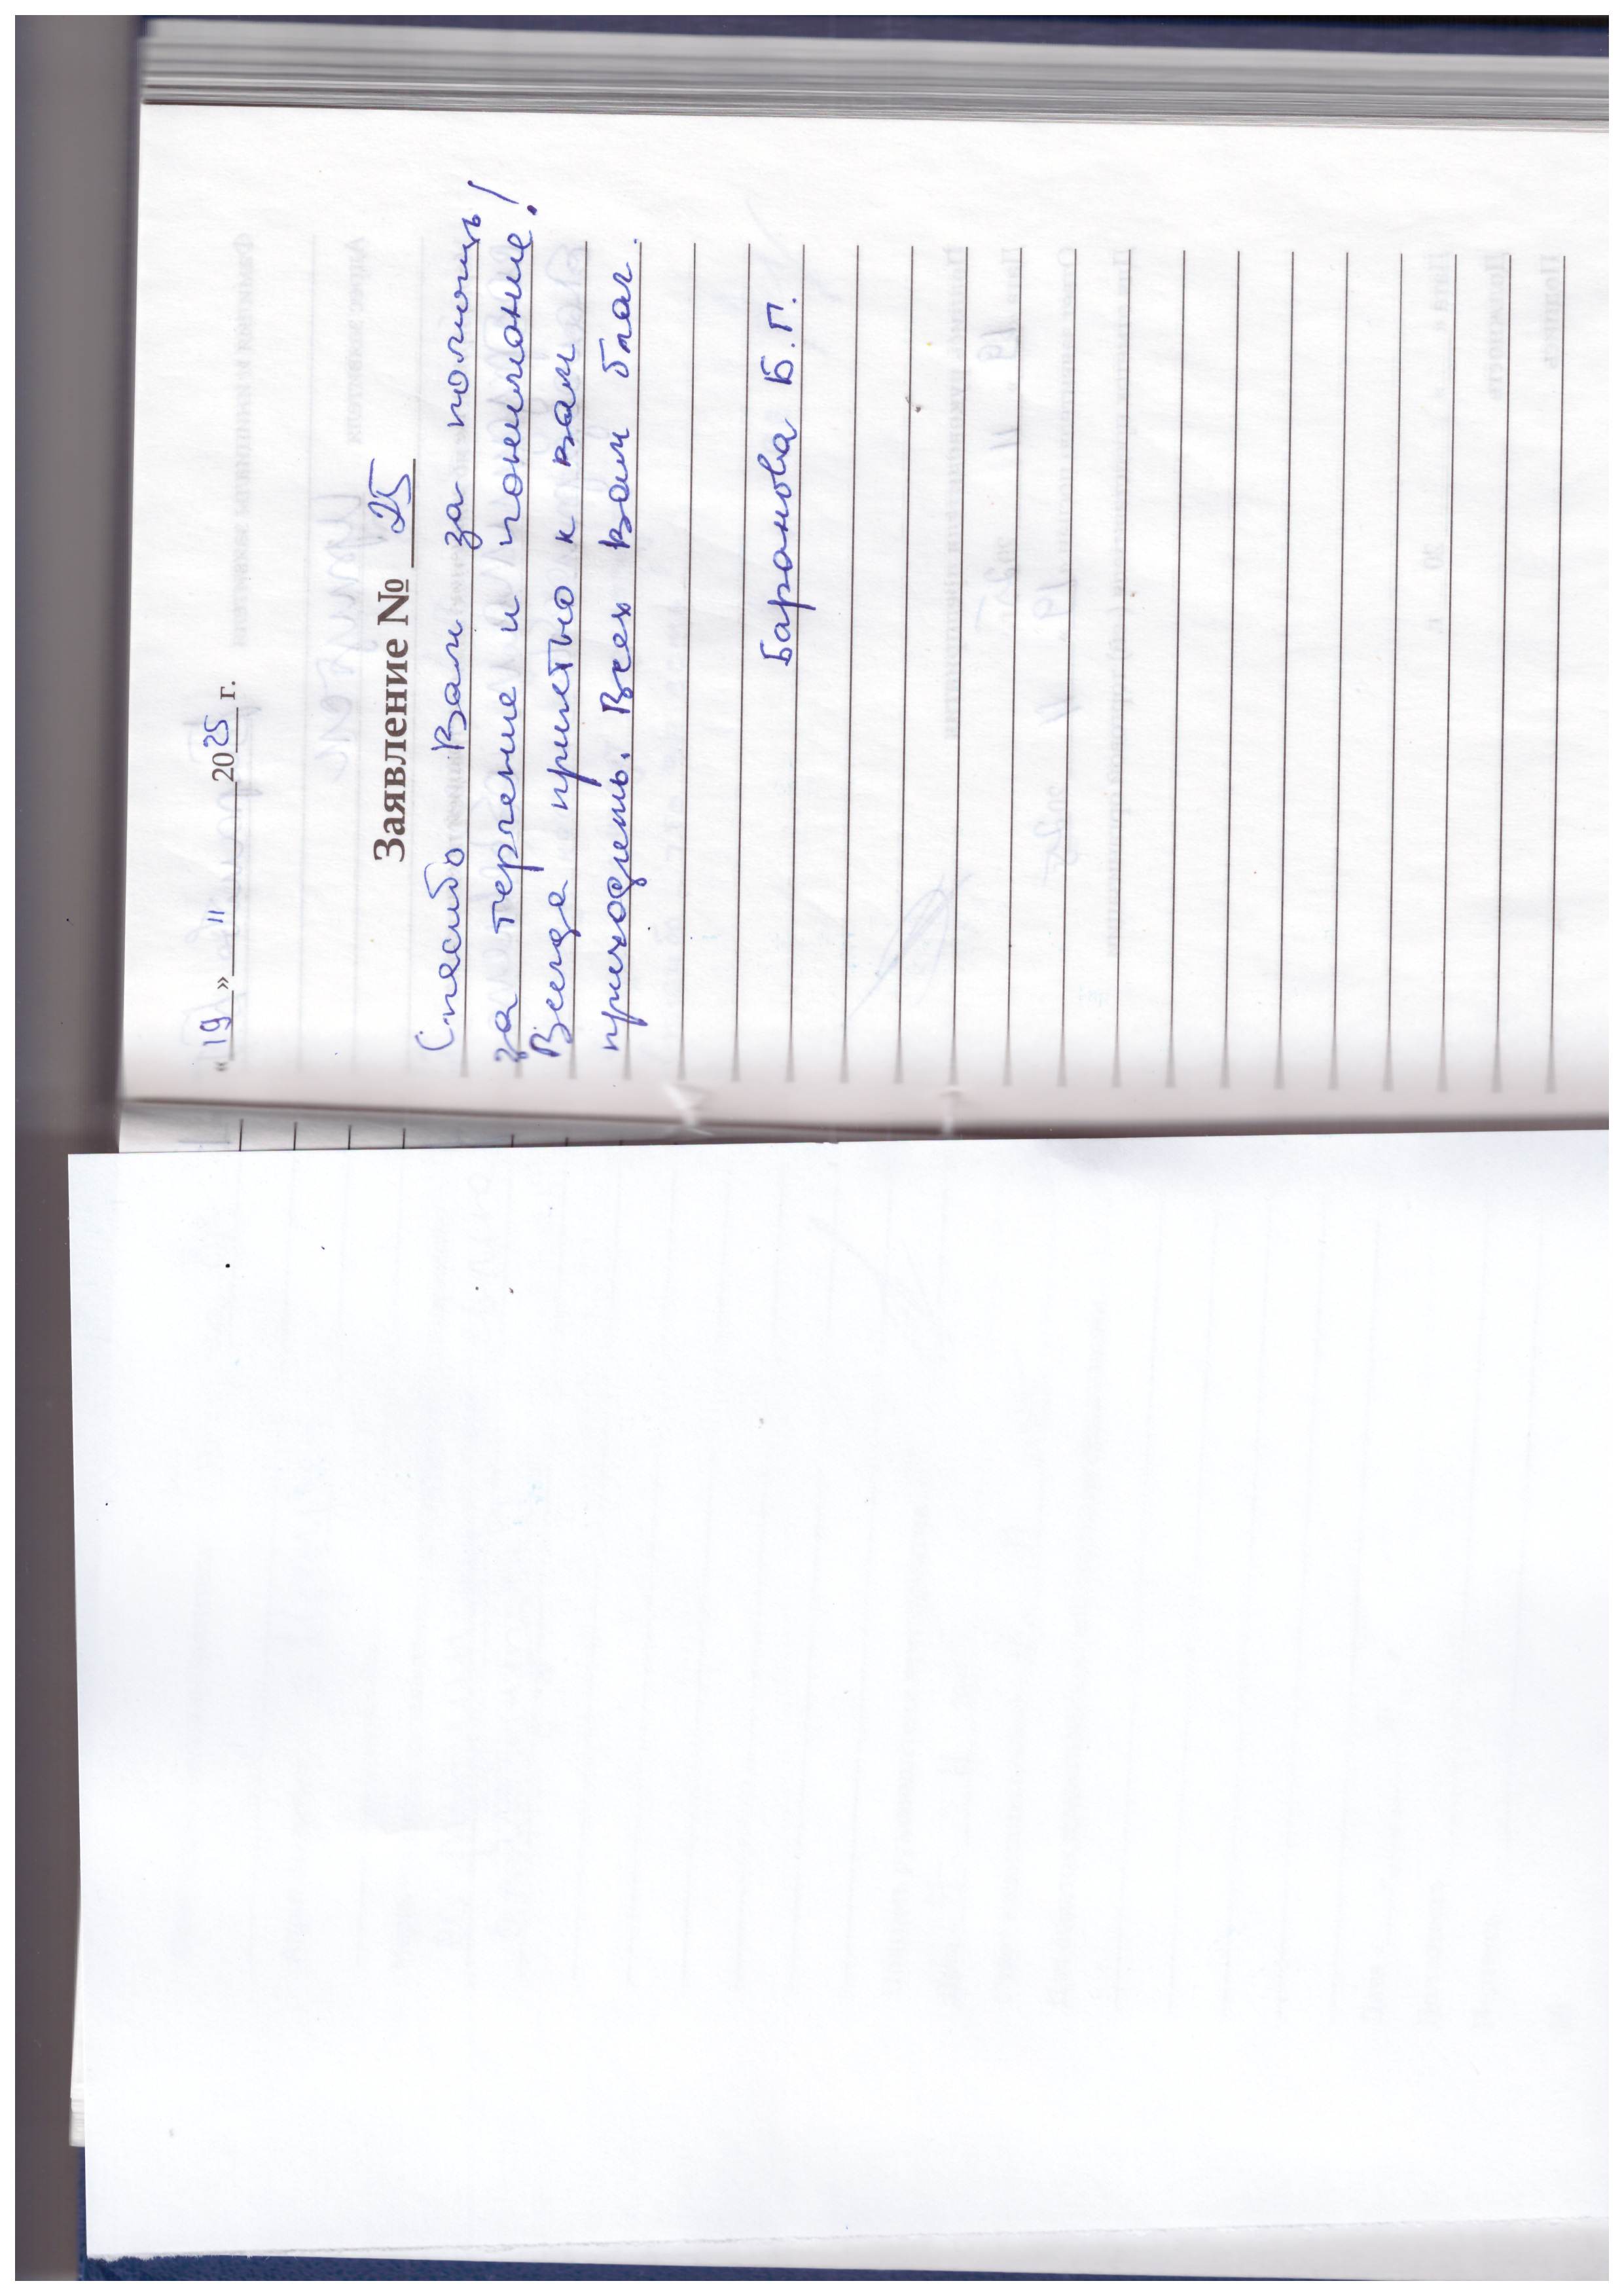 «19» 11 2025 г.
Заявление № 25
Спасибо Вам за помощь!
за терпение и понимание!
Всегда приятно к вам
приходить. Всех вам благ.
Баранова Б.П.